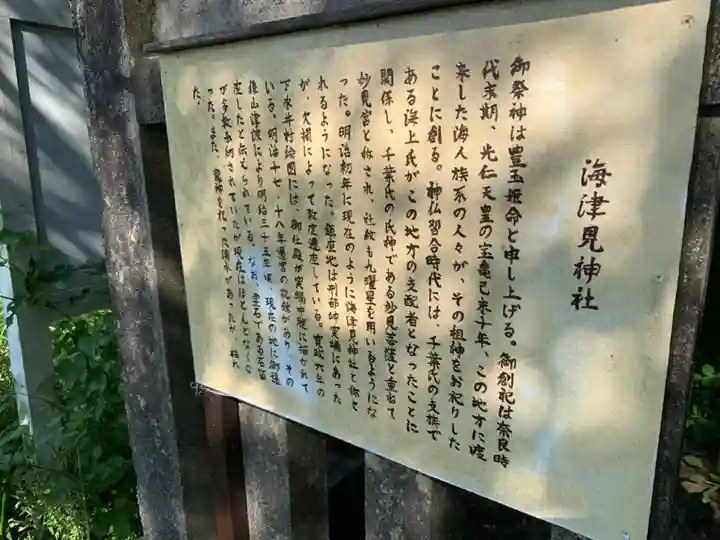 海津見神社
御祭神は豊玉姫命と申し上げる。御創祀は奈良時
代末期、光仁天皇の宝亀己未十年、この地方に渡
来した海人族系の人々が、その祖神をお祀りした
ことに創る。神仏習合時代には、千葉氏の支族で
ある海上氏がこの地方の支配者となったことに
関係し、千葉氏の氏神である妙見菩薩と重ねて
妙見宮と称され、社紋も九曜星を用いるようにな
った。明治初年に現在のように海津見神社と称さ
れるようになった。鎮座地は刑部岬突端にあった
が、欠損によって数度遷座している。寛政六年の
下永井村絵図には、御社殿が突端中腹に描かれて
いる。明治十七・十八年遷宮の記録があり、その
後山津波により明治三十五年頃、現在の地に御遷
座したと伝えられている。なお、霊石である石宮
が多数奉納されていたが現在はほとんどなくな
った。また、龍神を祀った湧水があったが、枯れ
た。